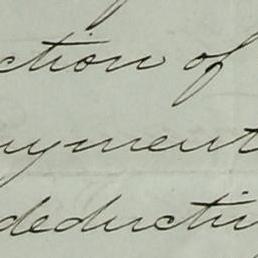 ction of
ayment
deducti